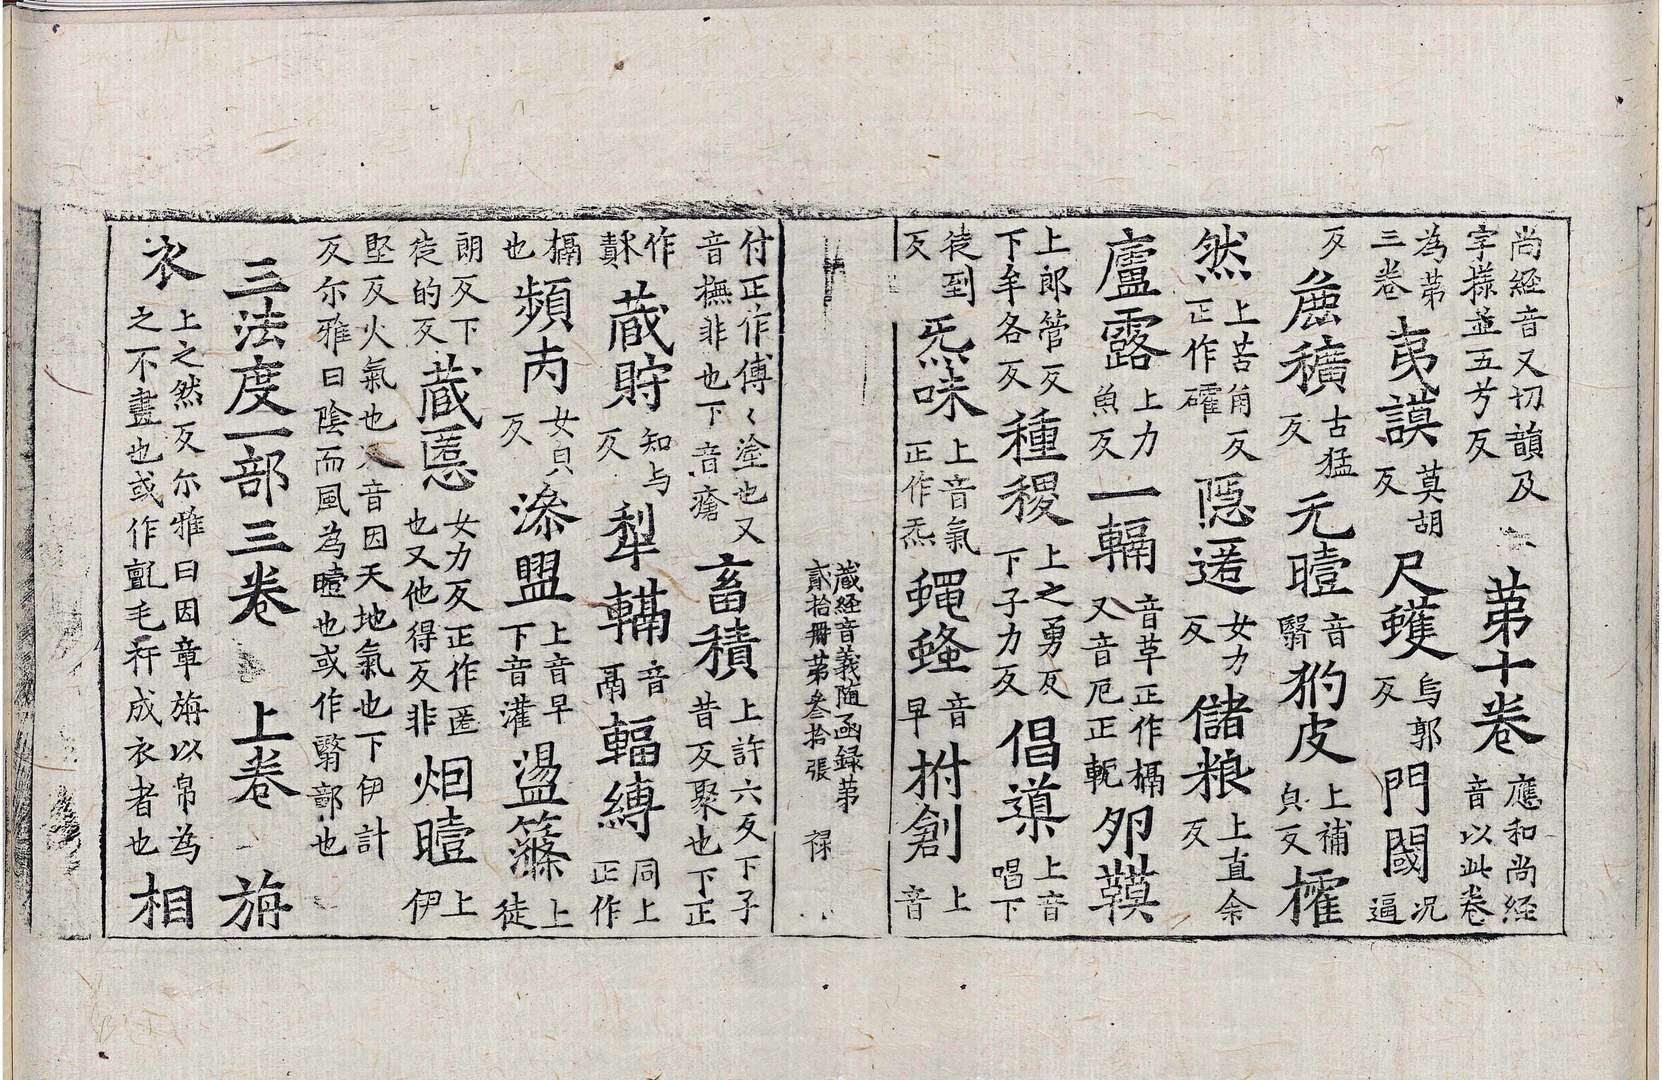 尚経音又切韻及字様並五芳反 第十卷 應和尚経音以此卷
為第三卷 䖍謨 莫胡反 尺蠖 烏郭反 門閾 況逼
反 麁穬 古猛反 无曀 音翳 犳皮 上補貞反 㩁
然 上苦角反正作礭 隠匿 女力反 儲粮 上直余反
廬露 上力魚反 一輻 音革正作槅又音厄正軛 夘鞼
上郎管反下牟各反 種稷 上之勇反下子力反 倡導 上音唱下
徒到反 炁味 上音氣正作炁 蠅蜂 音早 拊創 上音
蔵経音義随函録第貳拾冊第叄拾張 禄
付正作傅〻塗也又音撫非也下音瘡 畜積 上許六反下子昔反聚也下正
作𧵩 蔵貯 知与反 犁䡘 音鬲 輻縛 同上正作
槅也 頻㓇 女貞反 㳟盥 上音早下音灌 盪篠 上徒
朗反下徒的反 蔵慝 女力反正作匿也又他得反非 烟曀 上伊
堅反火氣也又音因天地氣也下伊計反尔雅曰陰而風為曀也或作翳部也
三法度一部三卷 上卷 旃
衣 上之然反尔雅曰因章旃以帛為之不畫也或作氈毛秆成衣者也 相